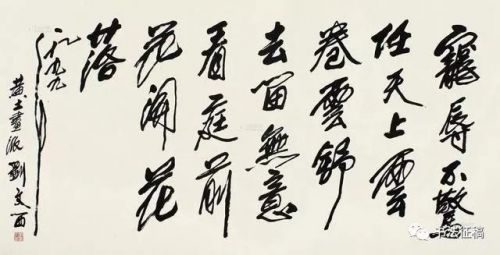 寵辱不驚
任天上雲
卷雲舒
去留無意
看庭前
花開花
落
黄土畫派劉文西
书法征稿